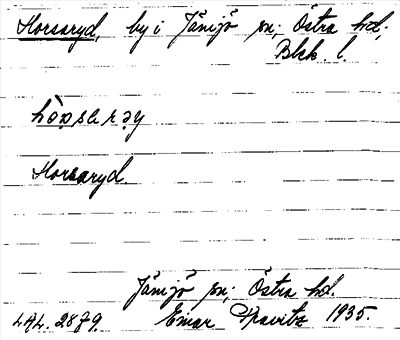 Horsaryd, by i Jämjö sn; Östra hd.
Blek. l.
Horsaryd.
Jämjö sn; Östra hd.
LAL. 2879. Einar Kravitz 1935.